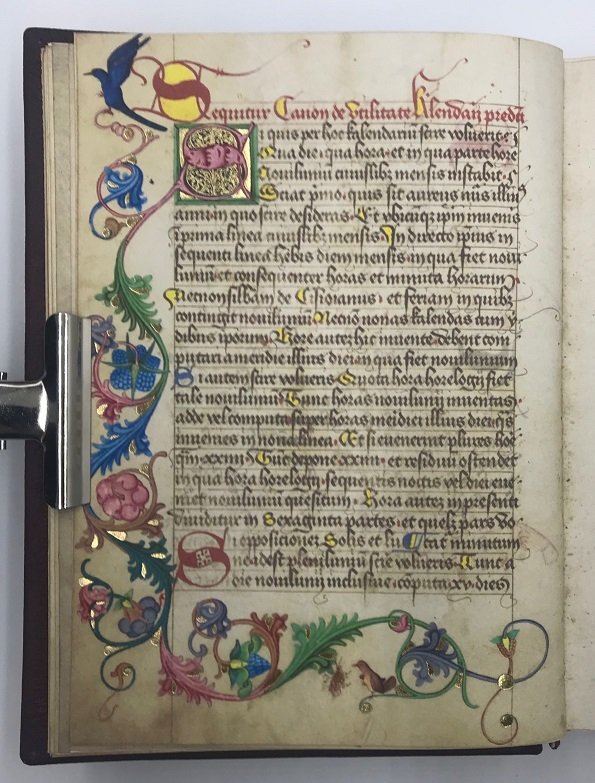 Sequitur Canon de Vtilitate kalendarij predcti
Si quis per hoc kalendariu scire voluerit
Qua die qua hora et in qua parte hore
Nouiluniu cuiuslibz mensis instabit
Sciat pmo quis sit aureus nus illius
anni in quo scire desideras Et vbicuqz ipm inuenis
i prima linea cuiuslibz mensis In directo ipsius in
sequenti linea hebis diem mensis in qua fiet noui
luniu et consequenter horas et minuta horarum
Necnon silbam de Cisioianus et feriam in quibz
contingit nouiluniu Necno nonas kalendas cum
dibus iporum Hore autez hic inuente debent com
putari a meridie illius diei in qua fiet nouiluniu
Si autem scire volueris Quota hora horelogij fiet
tale nouiluniu Tunc horas nouilunij inuentas
adde vel computa super horas meidiei illius diei qs
inuenies in nona linea Et si euenerint plures hoe
qm xxiiij Tuc depone xxiiij et residuu ostendet
in qua hora horelogij sequentis noctis vel diei eue
niet nouiluniu quesitum Hora autez in presenti
diuiditur in Sexaginta partes et quelz pars vo
catur minutum
Si opposicionez Solis et lu
ne id est pleniluniu scire volueris Tunc a
die nouilunij inclusiue coputa xv dies